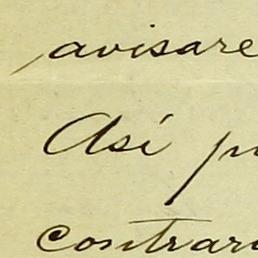 avisare
Así pu
contrari